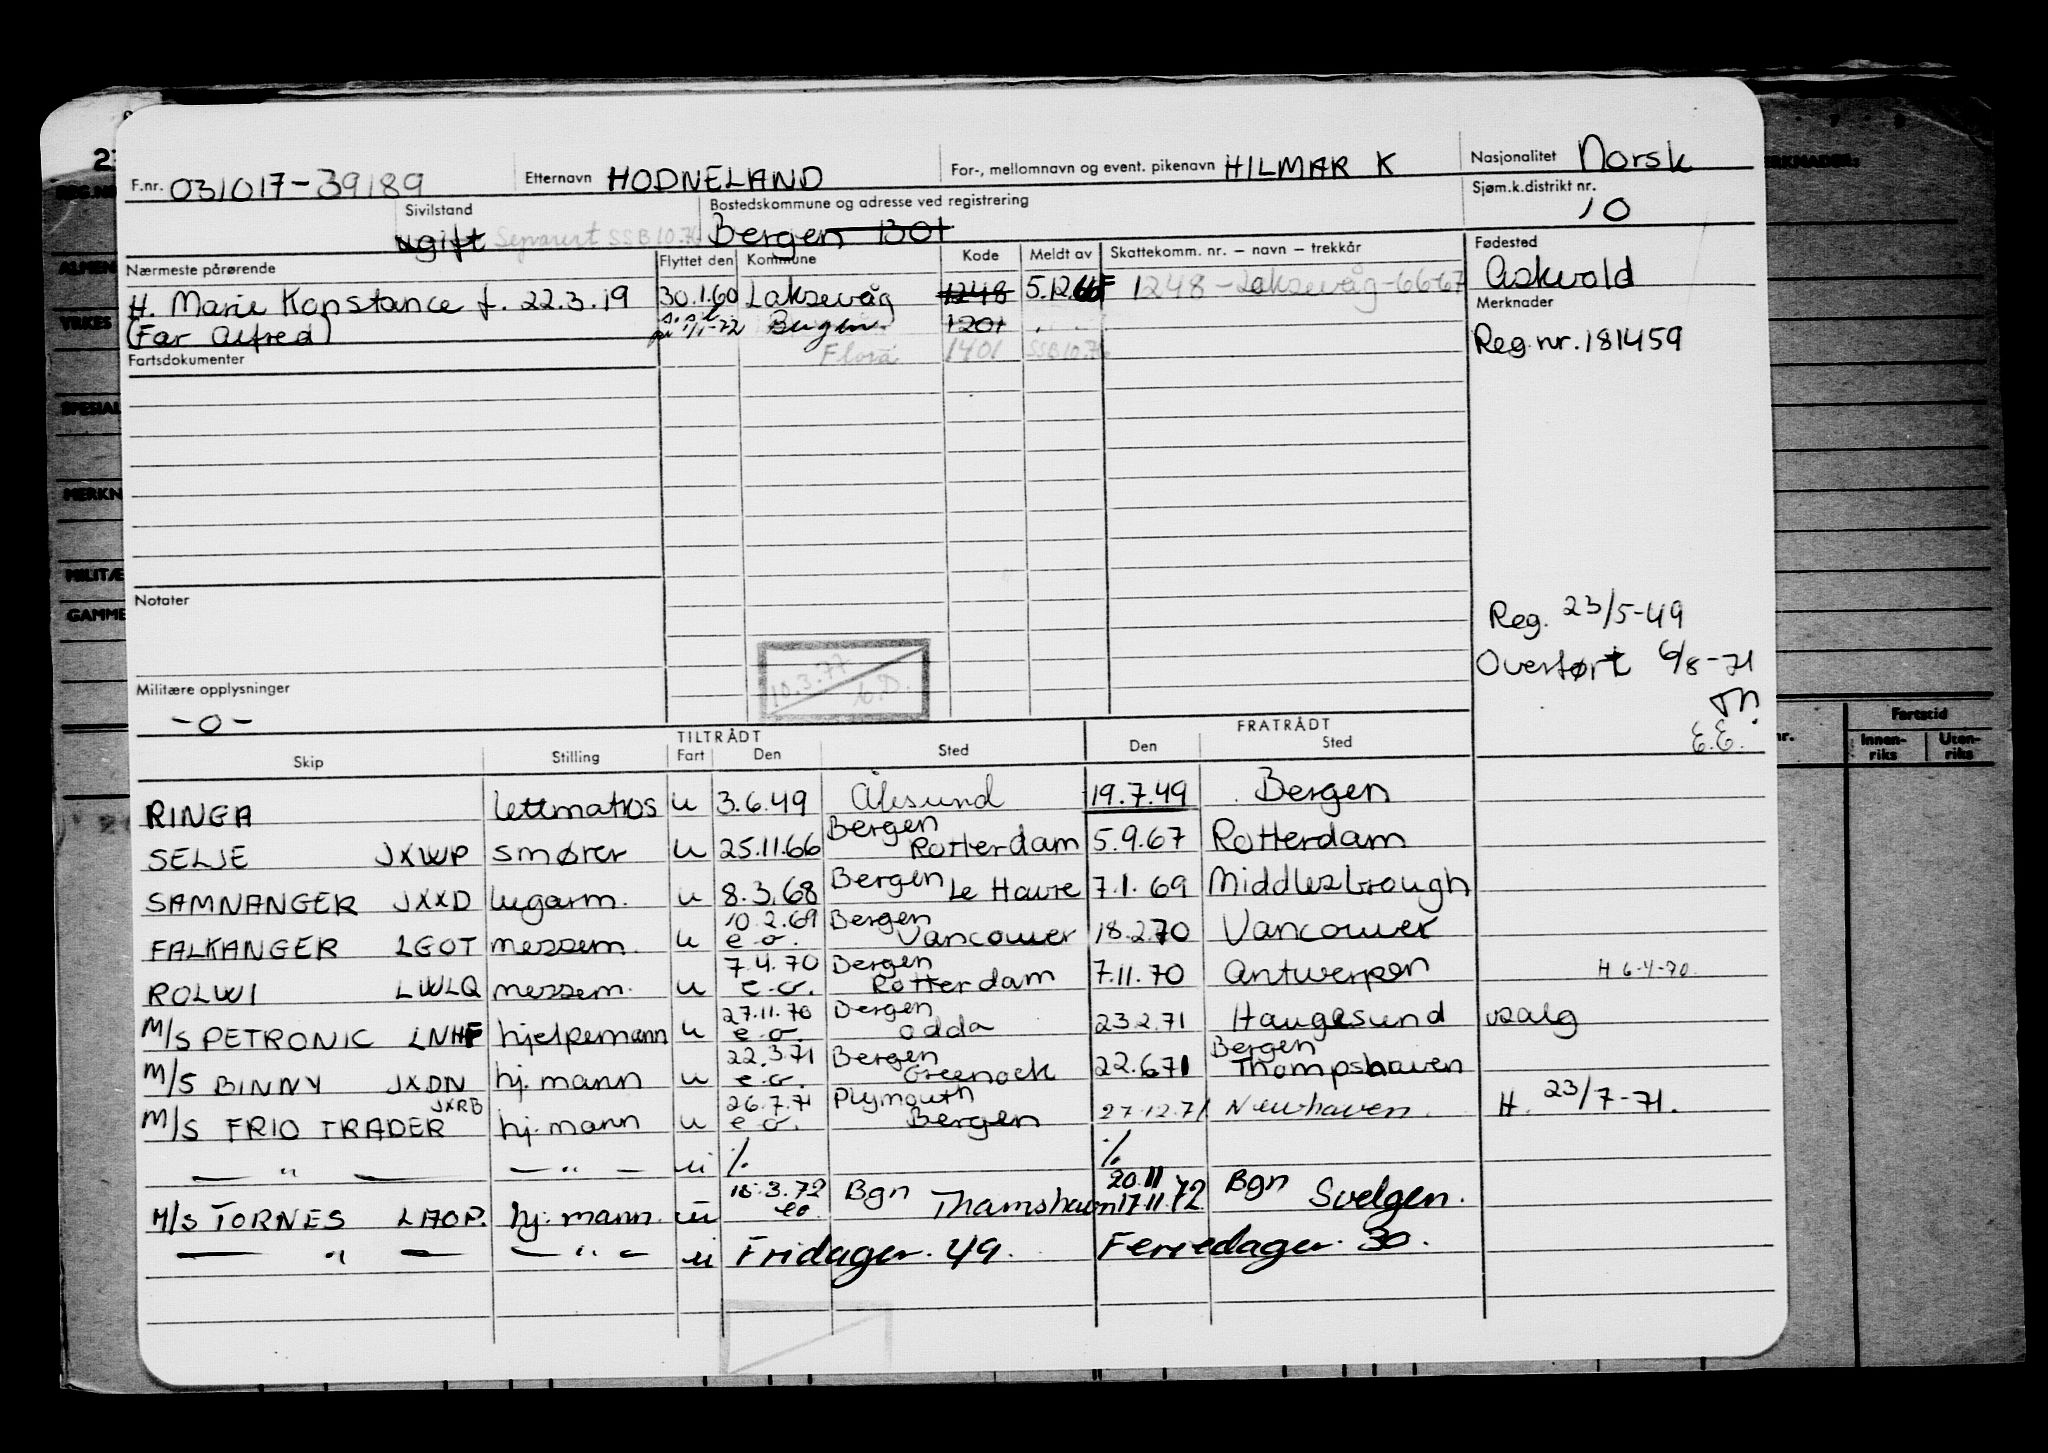 F.nr. 031017-39189 Etternavn HODNELAND For-, mellomnavn og event. pikenavn HILMAR K Nasjonalitet Norsk
Sivilstand Bostedskommune og adresse ved registrering Sjøm.k.distrikt nr.
ugift Separert SSB 10.76 Bergen 1301 10
Nærmeste pårørende Flyttet den Kommune Kode Meldt av Skattekomm. nr. – navn – trekkår Fødested
H. Marie Konstance f. 22.3.19 30.1.60 Laksevåg 1248 5.12.66 F 1248 - Laksevåg - 66-67 Askvold
(Far Alfred) 1/1-72 Bergen 1201 Merknader
Fartsdokumenter Flora 1401 SSB 10.76 Reg.nr. 181459
Notater
Reg. 23/5-49
10.3.77
Overført 6/8-71
Militære opplysninger
-0-
E.E.
TILTRÅDT FRATRÅDT
Skip Stilling Fart Den Sted Den Sted
RINGA lettmatros u 3.6.49 Ålesund 19.7.49 Bergen
SELJE JXWP smører u 25.11.66 Bergen Rotterdam 5.9.67 Rotterdam
SAMNANGER JXXD lugarm. u 8.3.68 Bergen Le Havre 7.1.69 Middlesbrough
FALKANGER LGOT messem. u 10.2.69 e.o. Bergen Vancouver 18.2.70 Vancouver
ROLWI LWLQ messem. u 7.4.70 e.o. Bergen Rotterdam 7.11.70 Antwerpen H 6-4-70
M/S PETRONIC LNHF hjelpemann u 27.11.70 e.o. Bergen Odda 23.2.71 Haugesund valg
M/S BINNY JXDN hj.mann u 22.3.71 e.o. Bergen Greenock 22.6.71 Bergen Thompshaven
M/S FRIO TRADER JXRB hj.mann u 26.7.71 e.o. Plymouth Bergen 27.12.71 Newhaven. H. 23/7-71.
— " — — " — u ./. ./.
M/S TORNES LAOP. hj.mann. u 18.3.72 eo. Bgn Thamshavn 20.11 17.11.72 Bgn Svelgen.
— " — — " — u Fridager. 49. Feriedager. 30.
MERKNADER:
ALMEN
YRKES
SPESIAL
MERKN
MILITÆ
GAMME
Fartstid
Innen-riks Uten-riks